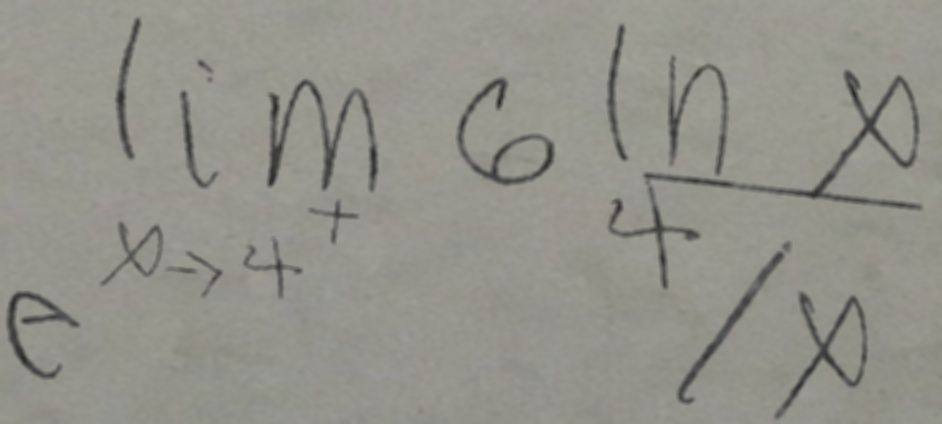 e^{\lim_{x \to 4^+} 6 \frac{\ln x}{4/x}}